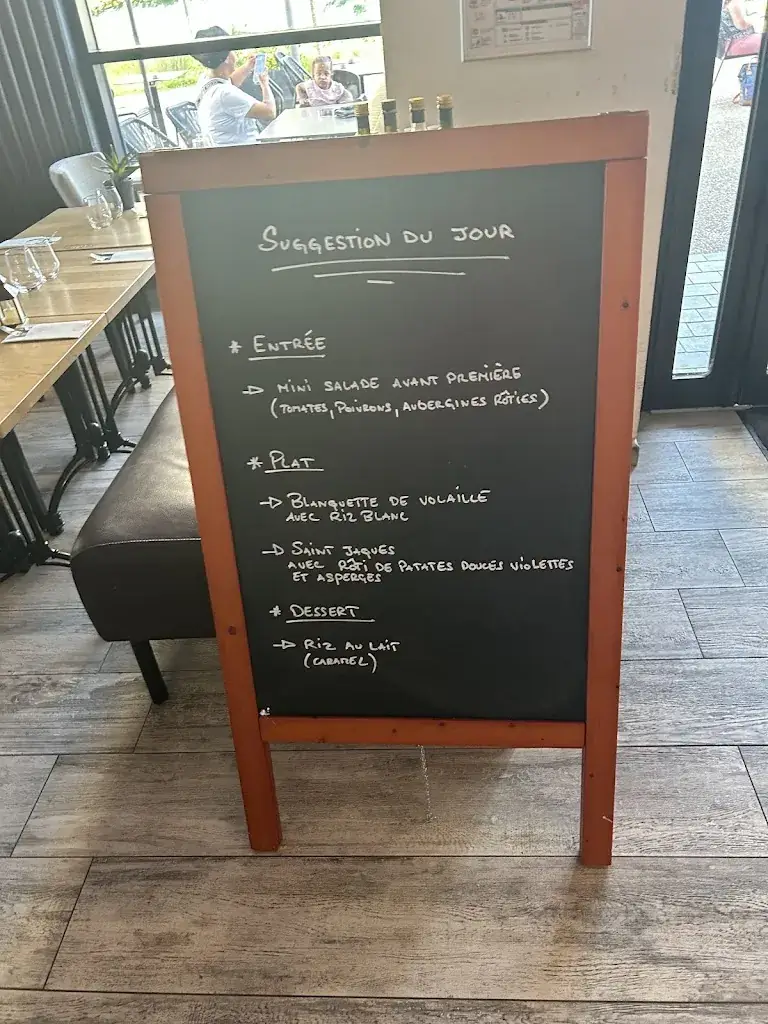 SUGGESTION DU JOUR
* ENTRÉE
→ MINI SALADE AVANT PREMIÈRE
(TOMATES, POIVRONS, AUBERGINES RÔTIES)
* PLAT
→ BLANQUETTE DE VOLAILLE
AVEC RIZ BLANC
→ SAINT JAQUES
AVEC RÔTI DE PATATES DOUCES VIOLETTES
ET ASPERGES
* DESSERT
→ RIZ AU LAIT
(CARAMEL)